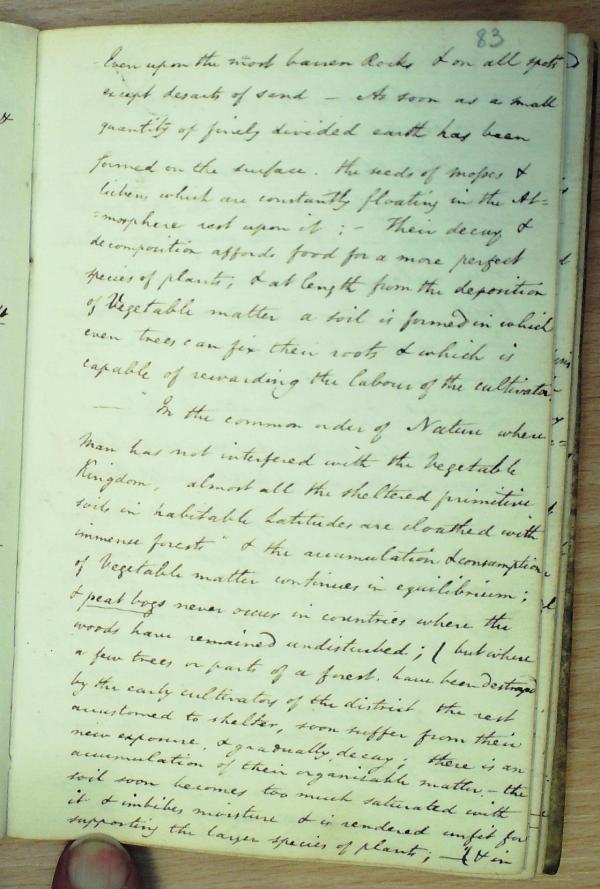 83
Even upon the most barren Rocks & on all spots
except desarts of sand — As soon as a small
quantity of finely divided earth has been
formed on the surface. the seeds of mosses &
lichens which are constantly floating in the At=
=mosphere rest upon it ; - Their decay &
decomposition affords food for a more perfect
species of plants; & at length from the deposition
of Vegetable matter a soil is formed in which
even trees can fix their roots & which is
capable of rewarding the labour of the cultivator.
— " In the common order of Nature where
Man has not interfered with the Vegetable
Kingdom, almost all the sheltered primitive
soils in habitable Latitudes are cloathed with
immense forests " & the accumulation & consumption
of Vegetable matter continues in equilibrium ;
& peat bogs never occur in countries where the
woods have remained undisturbed ; ( but where
a few trees or parts of a forest. have been destroyed
by the early cultivators of the district the rest
accustomed to shelter, soon suffer from their
new exposure, & gradually decay ; there is an
accumulation of their organizable matter, - the
soil soon becomes too much saturated with
it & imbibes moisture & is rendered unfit for
supporting the larger species of plants ; — ( & in